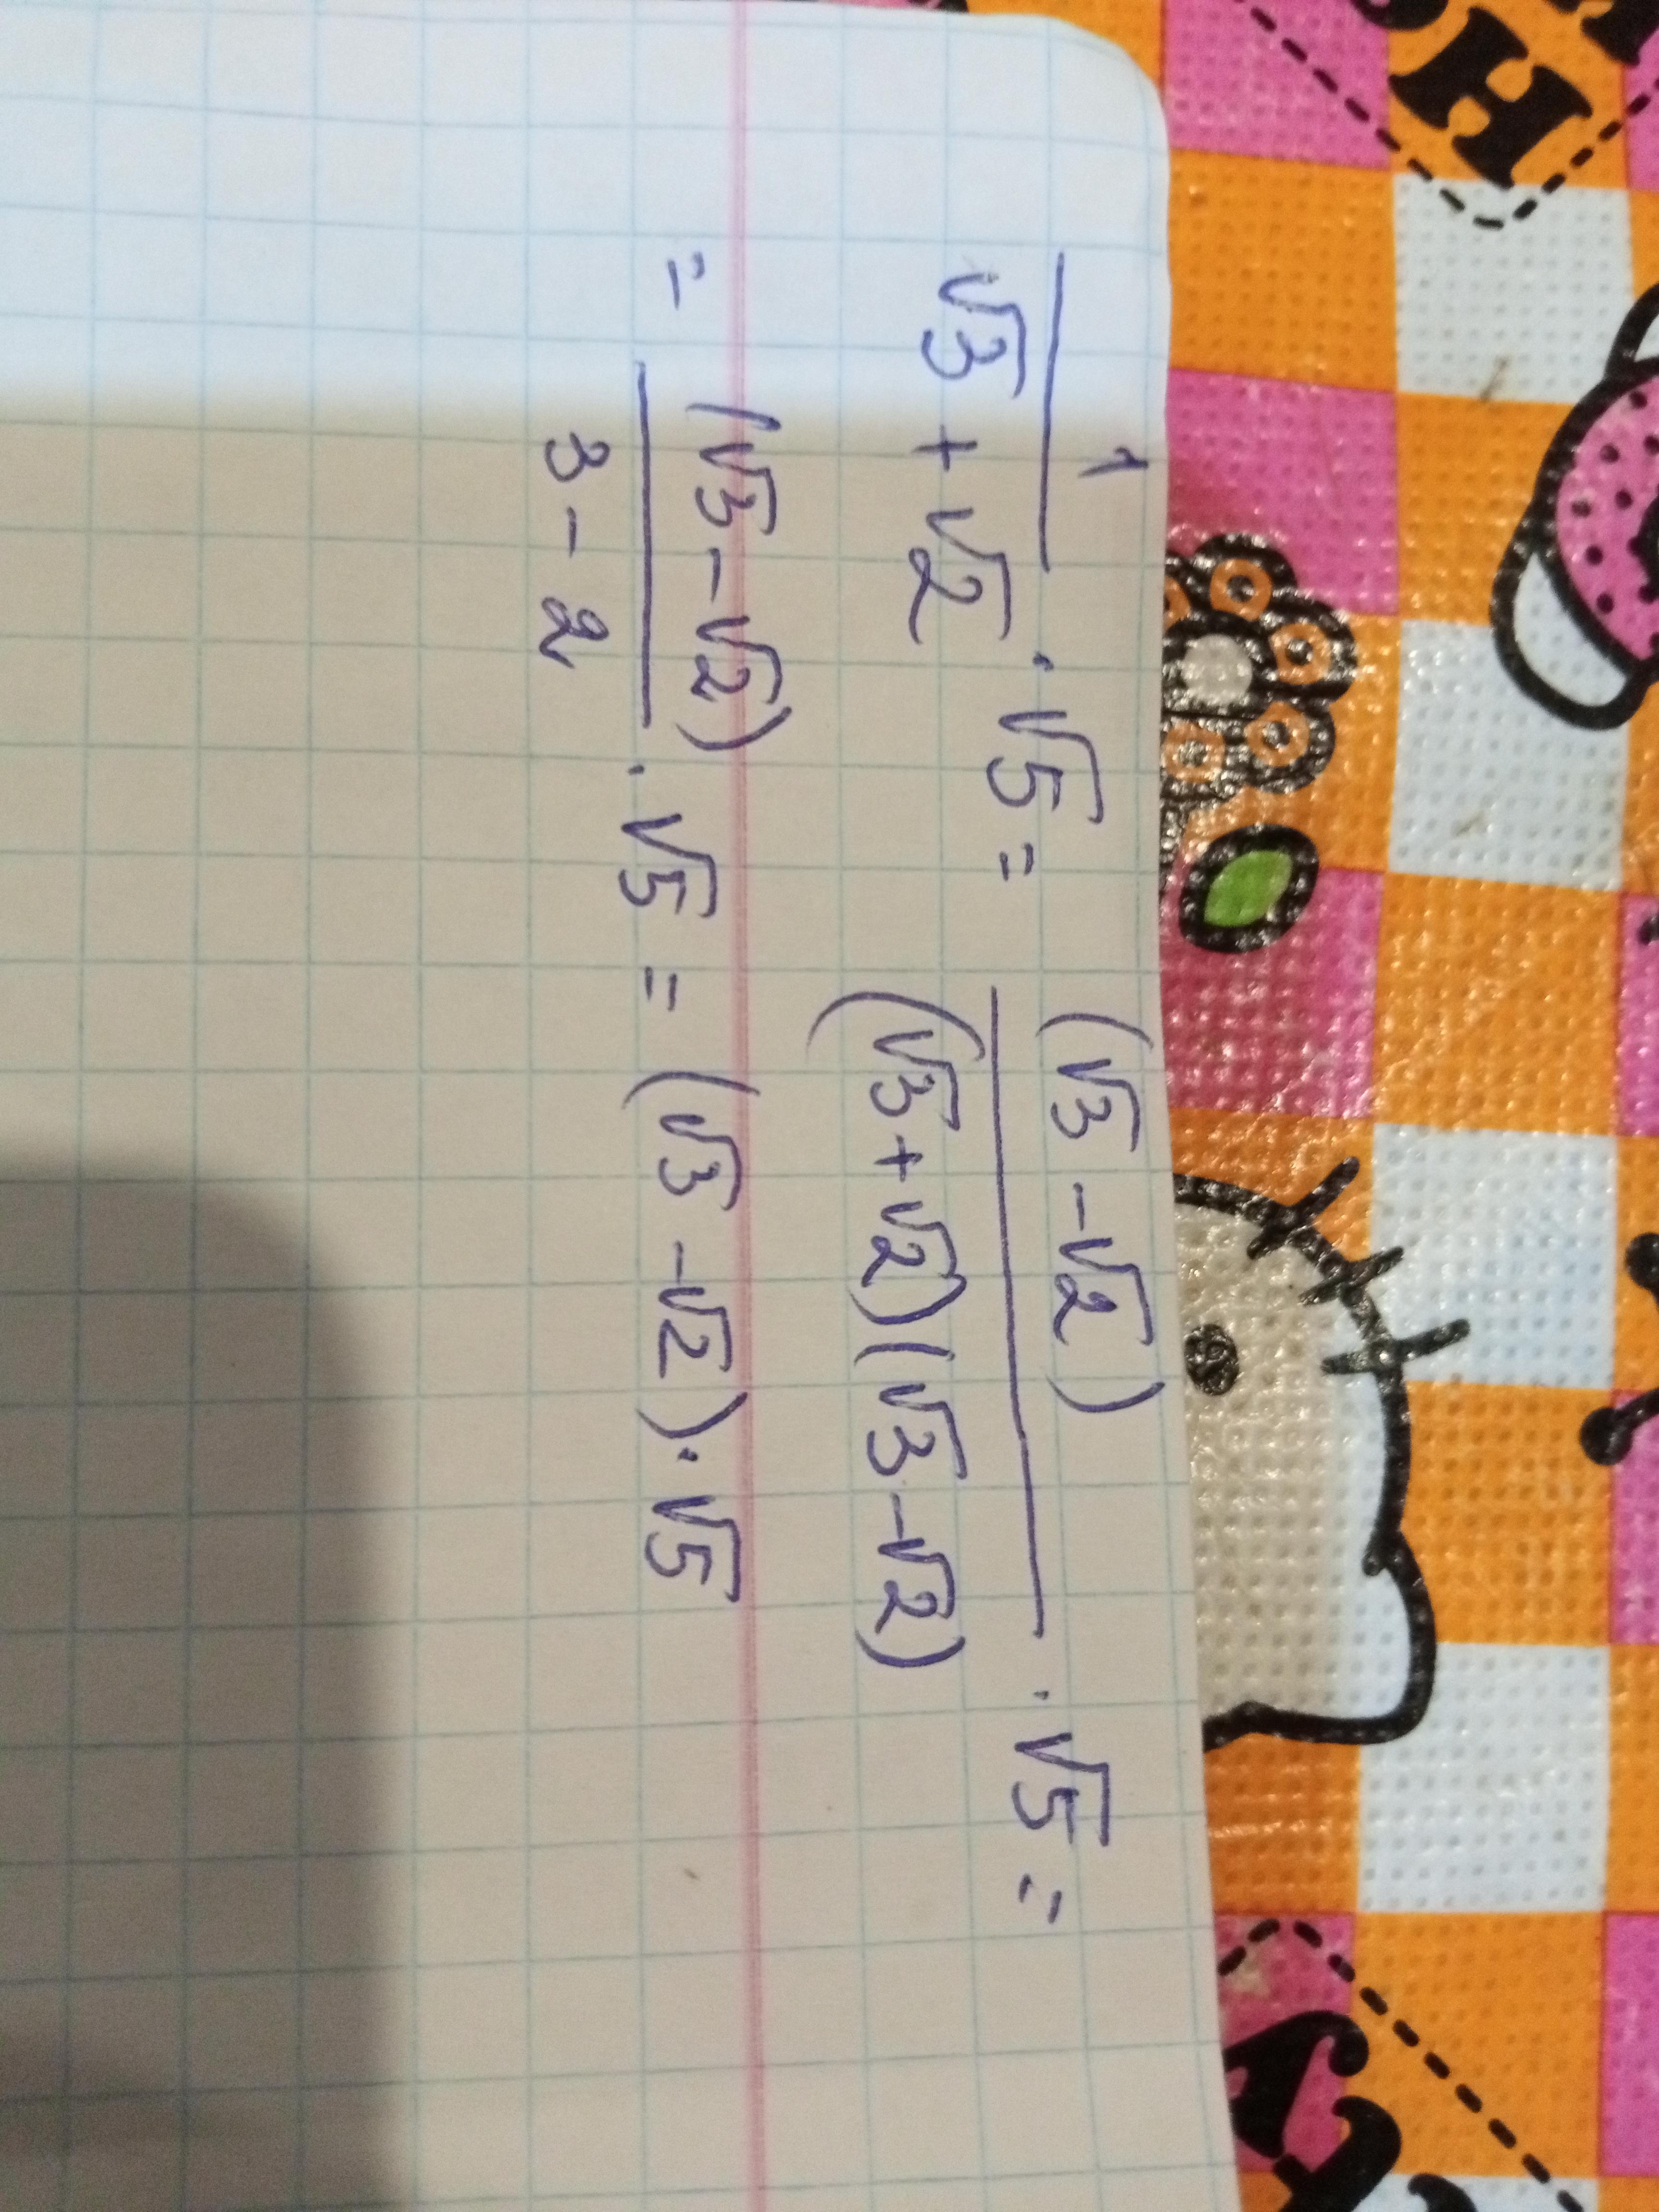 1/(√3 + √2) · √5 = (√3 - √2)/((√3 + √2)(√3 - √2)) · √5 =
= (√3 - √2)/(3 - 2) · √5 = (√3 - √2) · √5